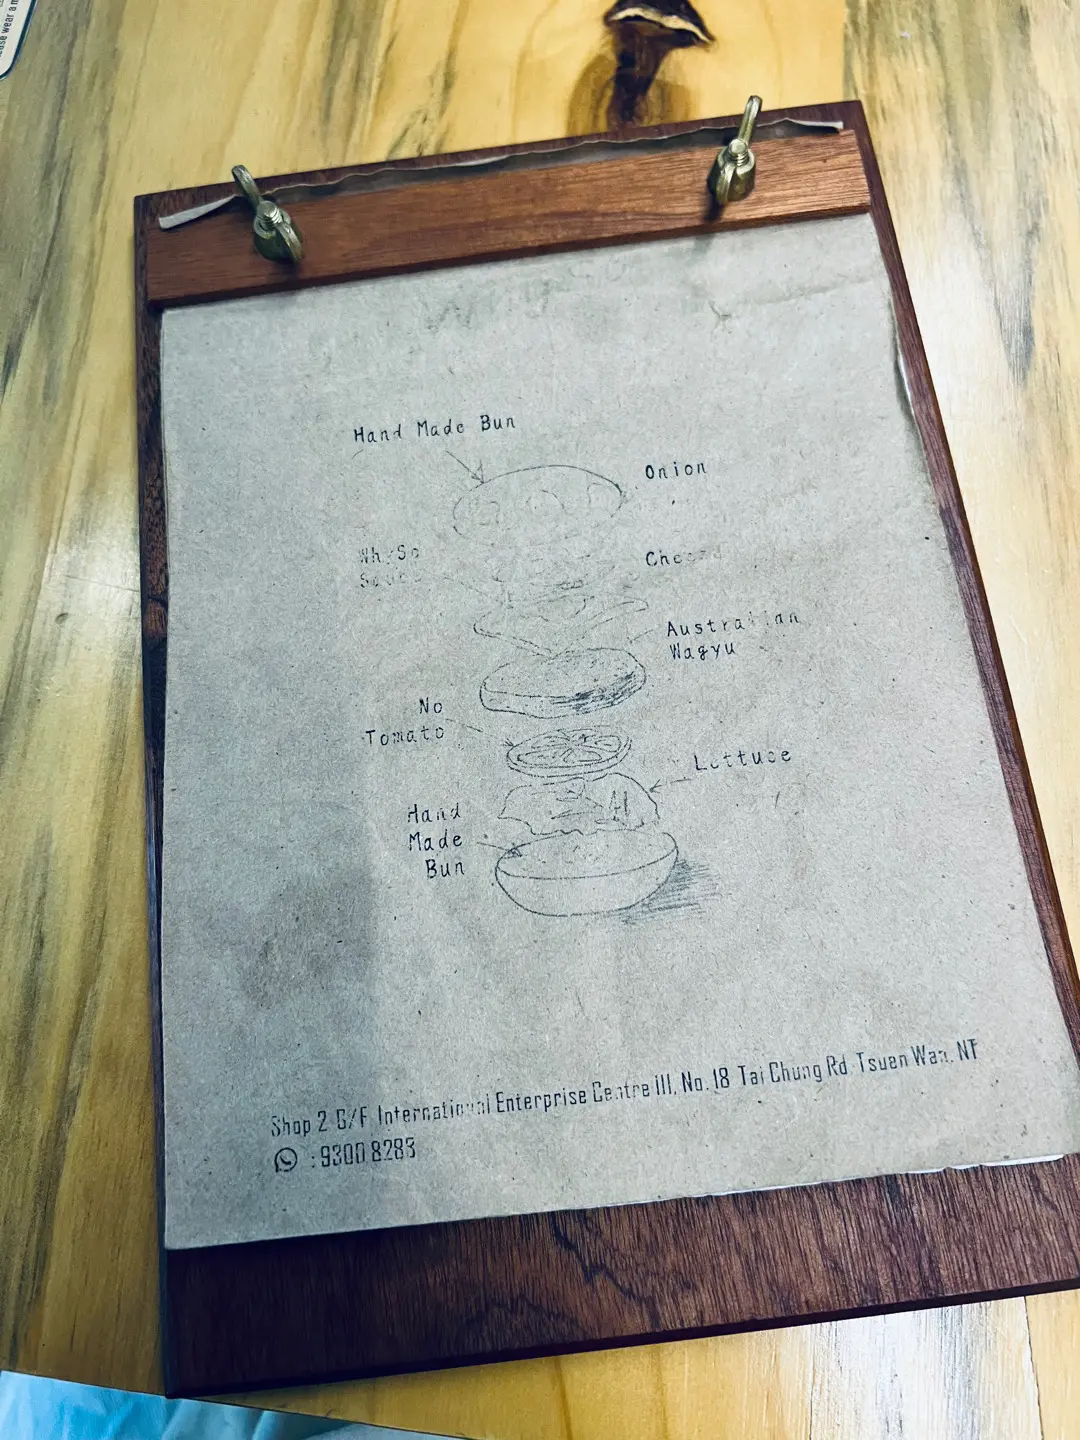 Hand Made Bun
Onion
WhySo
Sauce
Australian
Wagyu
No
Tomato
Lettuce
Hand
Made
Bun
Shop 2 G/F International Enterprise Centre III, No. 18 Tai Chung Rd. Tsuen Wan, NT
: 9300 8283